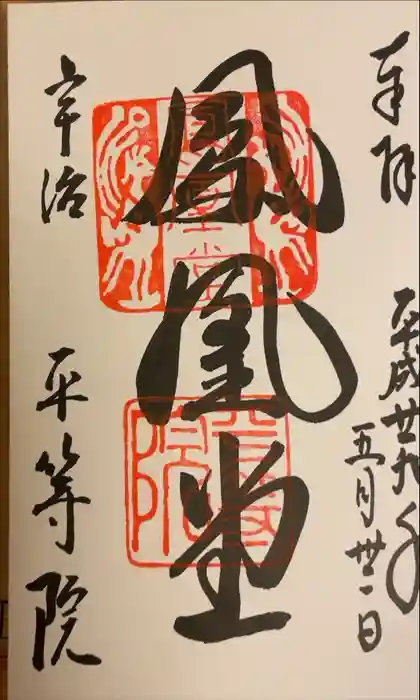 奉拝
平成廿九年
五月卅一日
鳳凰堂
宇治
平等院
鳳凰堂
平等院